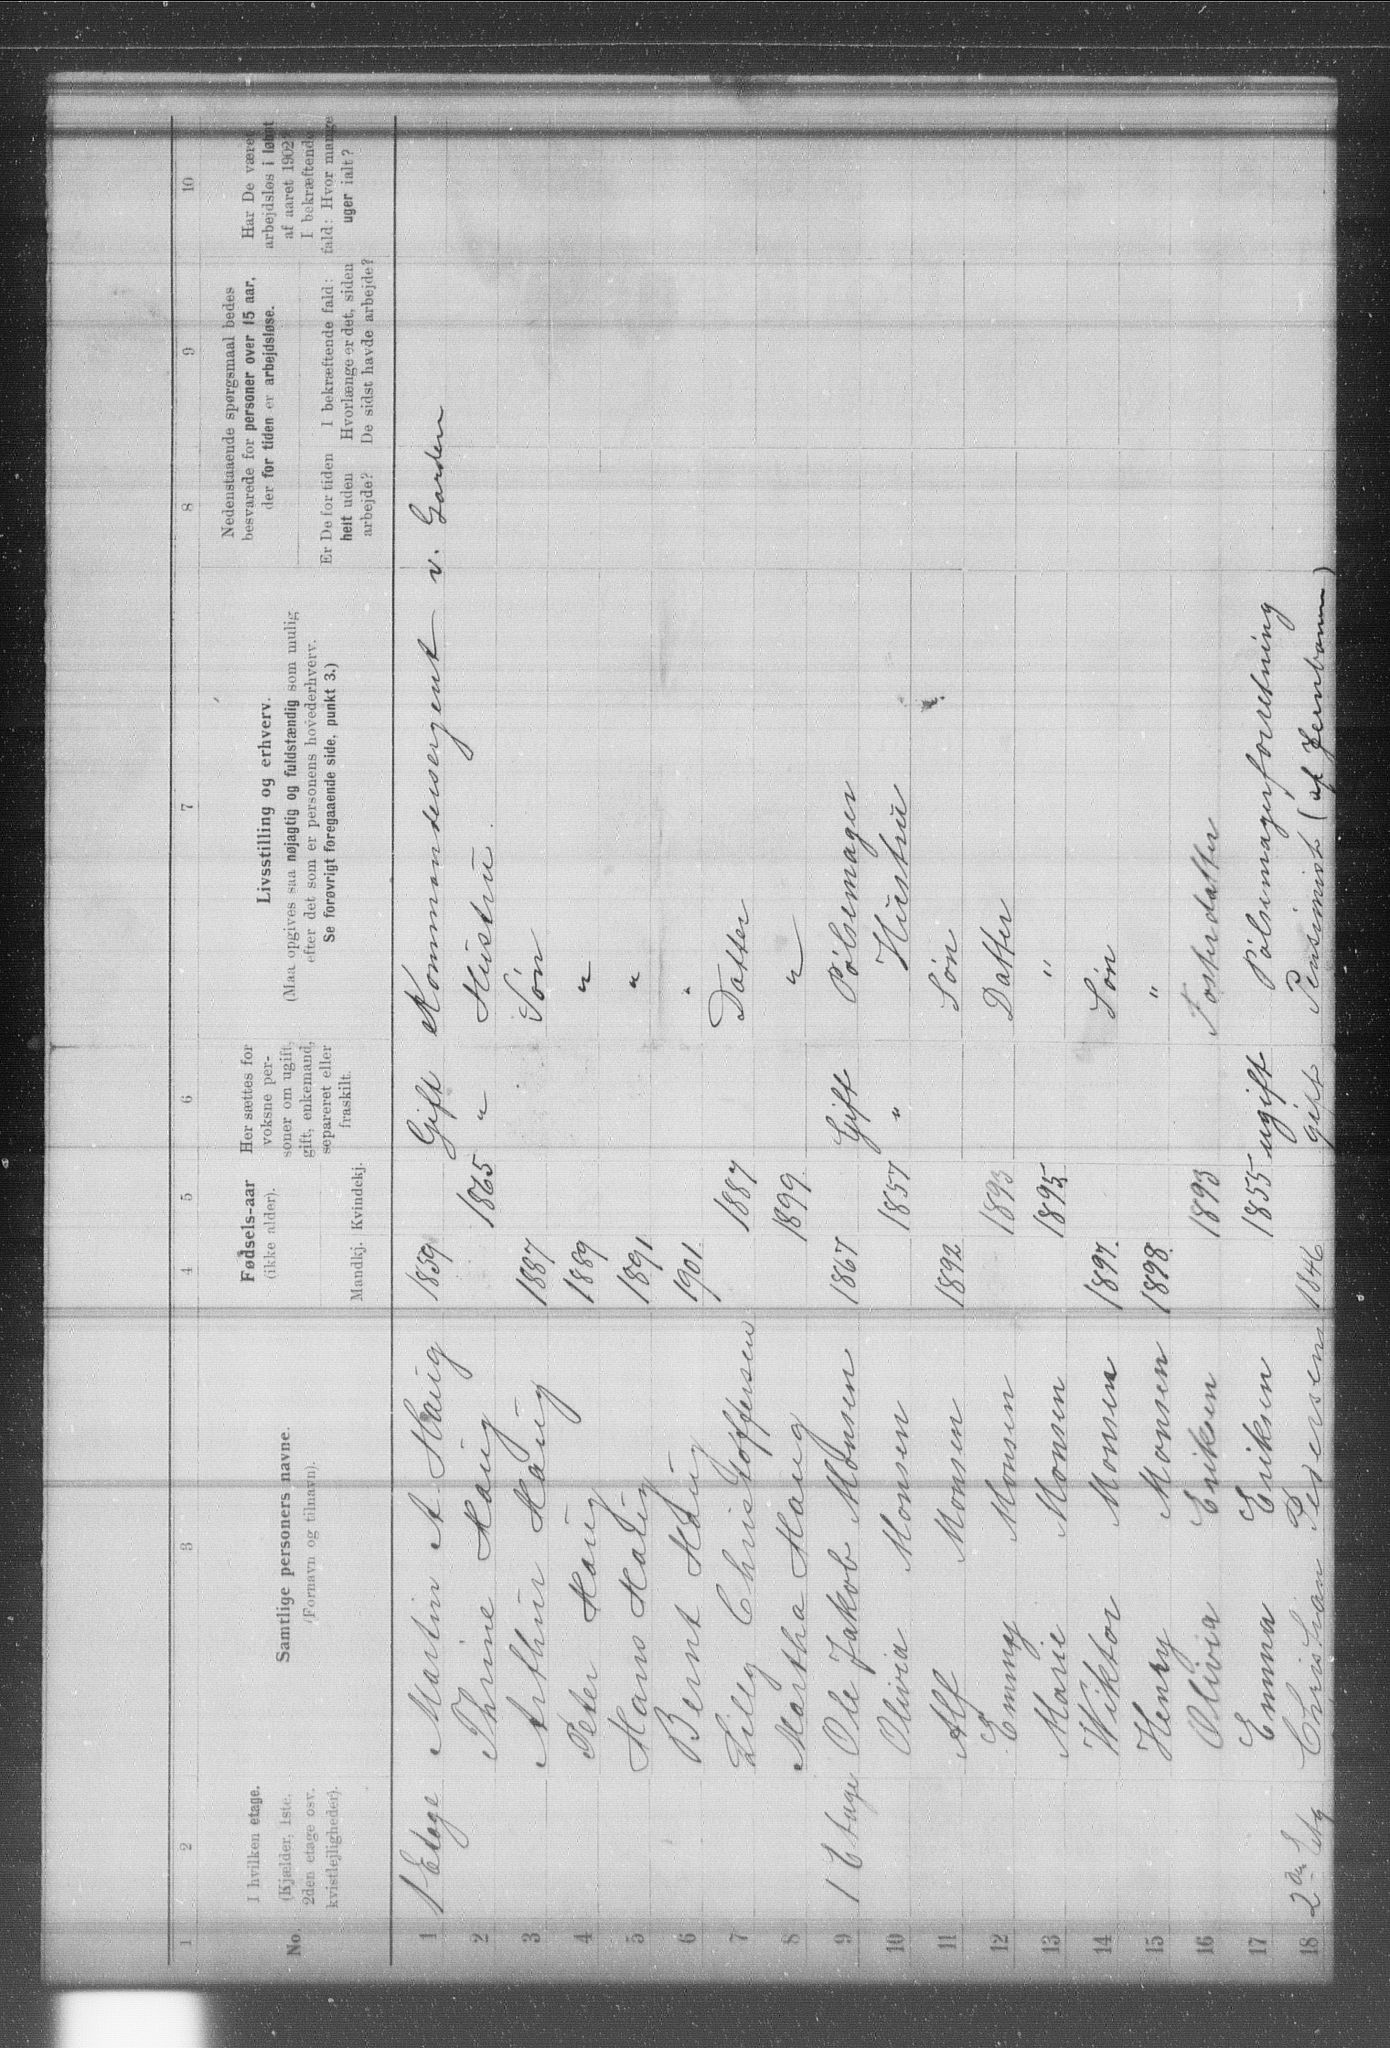 1 2 3 4 5 6 7 8 9 10
No. I hvilken etage. (Kjælder, 1ste. 2den etage osv. kvistlejligheder). Samtlige personers navne. (Fornavn og tilnavn). Fødsels-aar (ikke alder). Mandkj. Kvindekj. Her sættes for voksne personer om ugift, gift, enkemand, separeret eller fraskilt. Livsstilling og erhverv. (Maa opgives saa nøjagtig og fuldstændig som mulig efter det som er personens hovederhverv. Se forøvrigt foregaaende side, punkt 3.) Nedenstaaende spørgsmaal bedes besvarede for personer over 15 aar, der for tiden er arbejdsløse. Er De for tiden helt uden arbejde? I bekræftende fald: Hvorlænge er det, siden De sidst havde arbejde? Har De været arbejdsløs i løbet af aaret 1902? I bekræftende fald: Hvor mange uger ialt?
1 1 Etage Martin A. Haug 1859 Gift Kommandersergent v. Garden
2 Thrine Haug 1865 " Hustru
3 Arthur Haug 1887 Søn
4 Peter Haug 1889 "
5 Hans Haug 1891 "
6 Bernt Haug 1901 "
7 Lilly Christoffersen 1887 Datter
8 Martha Haug 1899 "
9 1 Etage Ole Jakob Monsen 1867 Gift Pølsemager
10 Olivia Monsen 1857 " Hustru
11 Alf Monsen 1892 Søn
12 Emmy Monsen 1893 Datter
13 Marie Monsen 1895 "
14 Wiktor Monsen 1897 Søn
15 Henry Monsen 1898 "
16 Olivia Eriksen 1893 Fosterdatter
17 Emma Eriksen 1855 ugift Pølsemagerforretning
18 2den Etg Christian Pedersen 1846 gift Pensinist (af Jernbanen)